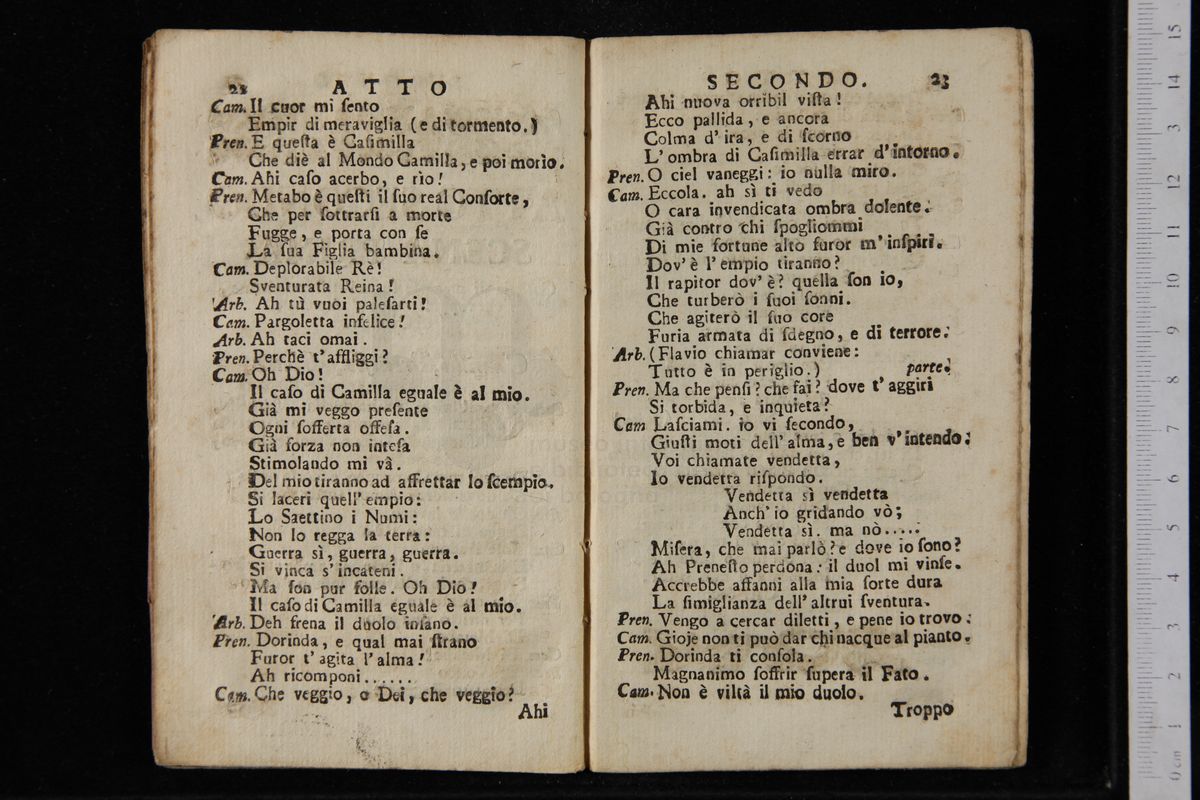 22 ATTO
Cam. Il cuor mi ſento
Empir di meraviglia (e di tormento.)
Pren. E queſta è Caſimilla
Che diè al Mondo Camilla, e poi morìo.
Cam. Ahi caſo acerbo, e rìo!
Pren. Metabo è queſti il ſuo real Conſorte,
Che per ſottrarſi a morte
Fugge, e porta con ſe
La ſua Figlia bambina.
Cam. Deplorabile Rè!
Sventurata Reina!
Arb. Ah tù vuoi paleſarti!
Cam. Pargoletta infelice!
Arb. Ah taci omai.
Pren. Perchè t'affliggi?
Cam. Oh Dio!
Il caſo di Camilla eguale è al mio.
Già mi veggo preſente
Ogni ſofferta offeſa.
Già forza non inteſa
Stimolando mi và.
Del mio tiranno ad affrettar lo ſcempio.
Si laceri quell'empio:
Lo Saettino i Numi:
Non lo regga la terra:
Guerra sì, guerra, guerra.
Si vinca s'incateni.
Ma ſon pur folle. Oh Dio!
Il caſo di Camilla eguale è al mio.
Arb. Deh frena il duolo inſano.
Pren. Dorinda, e qual mai ſtrano
Furor t'agita l'alma!
Ah ricomponi......
Cam. Che veggio, o Dei, che veggio?
Ahi
SECONDO. 23
Ahi nuova orribil viſta!
Ecco pallida, e ancora
Colma d'ira, e di ſcorno
L'ombra di Caſimilla errar d'intorno.
Pren. O ciel vaneggi: io nulla miro.
Cam. Eccola. ah sì ti vedo
O cara invendicata ombra dolente.
Già contro chi ſpogliommi
Di mie fortune alto furor m'inſpiri.
Dov'è l'empio tiranno?
Il rapitor dov'è? quella ſon io,
Che turberò i ſuoi ſonni.
Che agiterò il ſuo core
Furia armata di ſdegno, e di terrore.
Arb. (Flavio chiamar conviene:
Tutto è in periglio.) parte.
Pren. Ma che penſi? che fai? dove t'aggiri
Si torbida, e inquieta?
Cam Laſciami. io vi ſecondo,
Giuſti moti dell'alma, e ben v'intendo:
Voi chiamate vendetta,
Io vendetta riſpondo.
Vendetta sì vendetta
Anch'io gridando vò;
Vendetta sì. ma nò.....
Miſera, che mai parlò? e dove io ſono?
Ah Preneſto perdona: il duol mi vinſe.
Accrebbe affanni alla mia ſorte dura
La ſimiglianza dell'altrui ſventura.
Pren. Vengo a cercar diletti, e pene io trovo.
Cam. Gioje non ti può dar chi nacque al pianto.
Pren. Dorinda ti conſola.
Magnanimo ſoffrir ſupera il Fato.
Cam. Non è viltà il mio duolo.
Troppo
0 cm 1 2 3 4 5 6 7 8 9 10 11 12 13 14 15